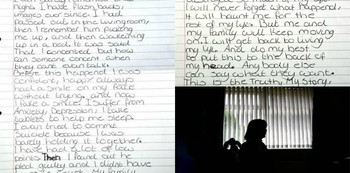 nights I have flash backs,
images over since I had
passed out in the living room,
then I remember him pushing
me up, and then awakening
up in a bed. It was said
that I consented, but how
can someone concent when
they cant even talk?
Before this happened I was
confident, happy always
had a smile on my face
without trying, and now
I fake a smile. I suffer from
Anxiety, Depression, I take
tablets to help me sleep.
I even tried to commit
suicide because I was
barely holding it together.
I have had a lot of low
points. Then I found out he
pled guilty and I didnt have
Court. My family
will never forget what happened,
it will haunt me for the
rest of my life. But me and
my family will keep moving
on. I will get back to living
my life. And do my best
to put this to the back of
my head. Anybody else
can say what they want.
This is the Truth, My Story,